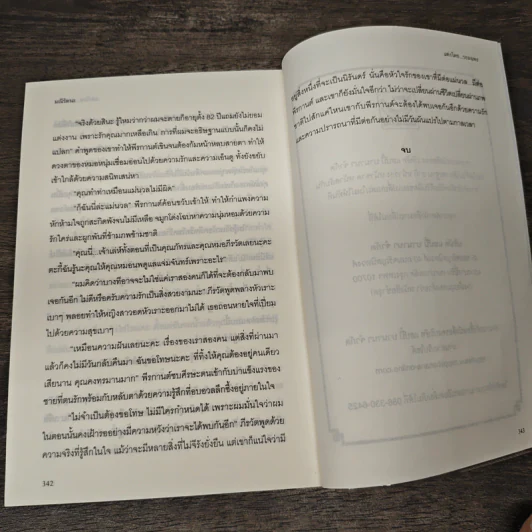 มณีรัตนะ
"จริงด้วยสินะ รู้ไหมกว่าถมจะตายก็อายุตั้ง 82 ปีแถมยังไม่ยอม
แต่งงาน เพราะรักคุณมากเหลือเกิน การที่ผมจะอธิษฐานแบบนั้นก็คงไม่
แปลก" คำพูดของเขาทำให้พีรกานต์เขินจนต้องก้มหน้าหลบสายตา ทำให้
ดวงตาของหมอหนุ่มเชื่อมอ่อนไปด้วยความรักและความเอ็นดู ทั้งยังขยับ
เข้าใกล้ด้วยความสนิทเสน่หา
"คุณทำท่าเหมือนแม่นวลไม่มีผิด"
"ก็ฉันนี่ล่ะแม่นวล" พีรกานต์ค้อนขวับเข้าให้ ทำให้กำแพงความ
หักห้ามใจถูกสะกิดพังจนไม่มีเหลือ จมูกโด่งโน้มหาความนุ่มหอมด้วยความ
รักใคร่และผูกพันที่ข้ามภพข้ามชาติ
"คุณนี่...เจ้าเล่ห์ทั้งตอนที่เป็นคุณภัทรและคุณหมอภีรวัตเลยนะคะ
"ผมคิดว่าบางทีอาจจะไม่ใช่แค่เราสองคนก็ได้ที่จะต้องกลับมาพบ
เจอกันอีก ไม่ดีหรือครับความรักเป็นสิ่งสวยงามนะ" ภีรวัตพูดพลางหัวเราะ
เบาๆ พลอยทำให้หญิงสาวอดหัวเราะออกมาไม่ได้ เธอถอนหายใจที่เปี่ยม
ไปด้วยความสุขเบาๆ
"เหมือนความฝันเลยนะคะ เรื่องของเราสองคน แต่สิ่งที่ผ่านมา
แล้วก็คงไม่มีวันกลับคืนมา ฉันขอโทษนะคะ ที่ทิ้งให้คุณต้องอยู่คนเดียว
เสียนาน คุณคงทรมานมาก" พีรกานต์ซบศีรษะตนเข้ากับบ่าแข็งแรงของ
ชายที่ตนรักพร้อมกับหลับตาด้วยความรู้สึกที่อบอวลลึกซึ้งอยู่ภายในใจ
"ไม่จำเป็นต้องขอโทษ ไม่มีใครกำหนดได้ เพราะผมมั่นใจว่าผม
ในตอนนั้นคงเฝ้ารออย่างมีความหวังว่าเราจะได้พบกันอีก" ภีรวัตพูดด้วย
ความจริงที่รู้สึกในใจ แม้ว่าจะมีหลายสิ่งที่ไม่จีรังยั่งยืน แต่เขาก็แน่ใจว่ามี
342
อยู่สิ่งหนึ่งที่จะเป็นนิรันดร์ นั่นคือหัวใจรักของเขาที่มีต่อแม่นวล
พีรกานต์ และเขาก็ยังมั่นใจอีกว่า ไม่ว่าจะเปลี่ยนผ่านชีวิตเปลี่ยนผ่านภพ
ชาติไปสักแค่ไหนเขากับพีรกานต์จะต้องได้พบเจอกันอีกด้วยความรัก
และความปรารถนาที่มีต่อกันอย่างไม่มีวันผันแปรไปตามกาลเวลา
จบ
343